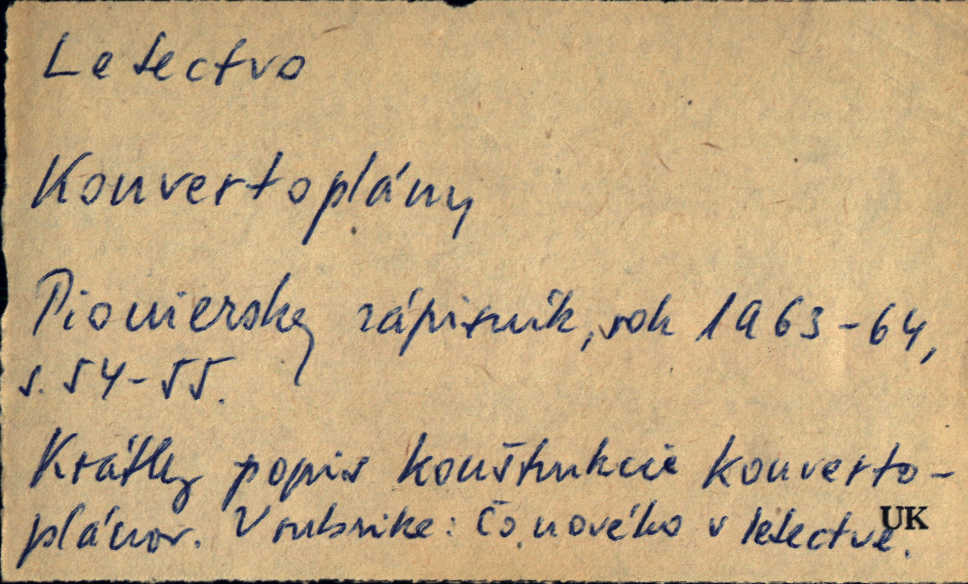 Letectvo
Konvertoplány
Pioniersky zápisník, rok 1963-64,
s. 54-55.
Krátky popis konštrukcie konverto-
plánov. V rubrike: Čo nového v letectve.
UK